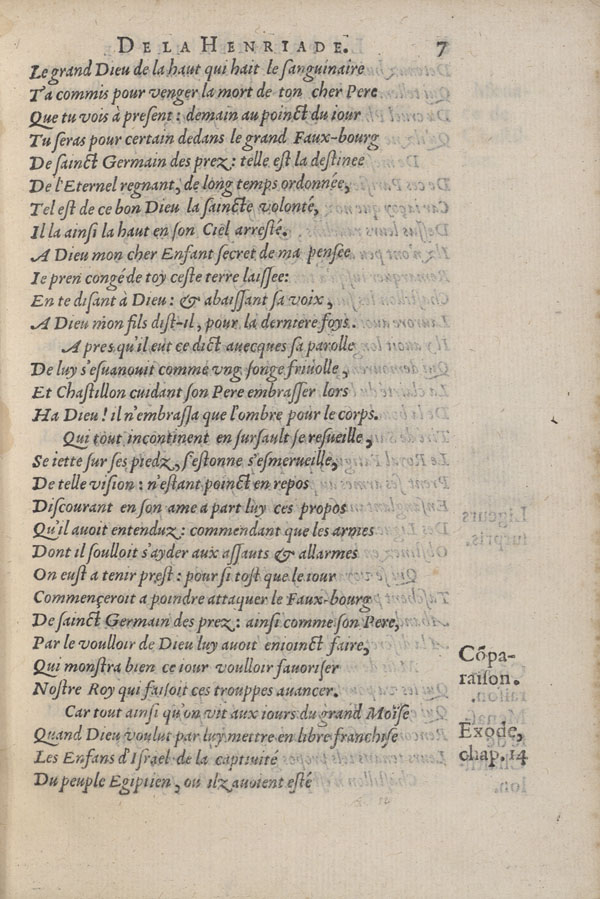 DE LA HENRIADE. 7
Le grand Dieu de la haut qui hait le sanguinaire
T'a commis pour venger la mort de ton cher Pere
Que tu vois à present : demain au poinct du iour
Tu seras pour certain dedans le grand Faux-bourg
De sainct Germain des prez : telle est la destinee
De l'Eternel regnant, de long temps ordonnée,
Tel est de ce bon Dieu la saincte volonté,
Il la ainsi la haut en son Ciel arresté.
A Dieu mon cher Enfant secret de ma pensée
Ie pren congé de toy ceste terre laissee:
En te disant à Dieu : & abaissant sa voix,
A Dieu mon fils dist-il, pour la derniere foys.
A pres qu'il eut ce dict avecques sa parolle
De luy s'esvanouit comme vng songe frivolle,
Et Chastillon cuidant son Pere embrasser lors
Ha Dieu ! il n'embrassa que l'ombre pour le corps.
Qui tout incontinent en sursault se resueille,
Se iette sur ses piedz, s'estonne s'esmerueille,
De telle vision : n'estant poinct en repos
Discourant en son ame a part luy ces propos
Qu'il avoit entenduz : commendant que les armes
Dont il soulloit s'ayder aux assauts & allarmes
On eust a tenir prest : pour si tost que le iour
Commençeroit a poindre attaquer le Faux-bourg
De sainct Germain des prez : ainsi comme son Pere,
Par le voulloir de Dieu luy avoit enioinct faire,
Qui monstra bien ce iour voulloir favoriser
Nostre Roy qui faisoit ces trouppes avancer.
Car tout ainsi qu'on vit aux iours du grand Moïse
Quand Dieu voulut par luy mettre en libre franchise
Les Enfans d'Israel de la captivité
Du peuple Egiptien, ou ilz avoient esté
Cõpa-
raison.
Exode,
chap. 14